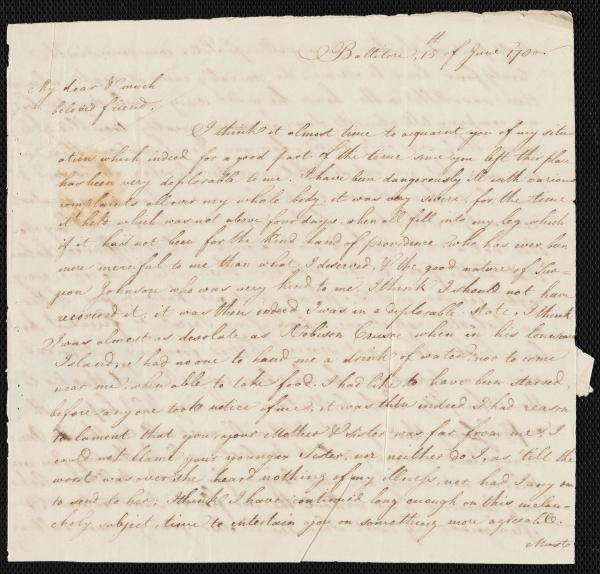 Baltilore, 15th of June 1780.
My dear & much
beloved friend.
I think it almost time to acquaint you of my situ=
=ation which indeed for a good part of the time sine you left this place
has been very deplorable to me. I have been dangerously ill with various
complaints all over my whole body, it was very severe, for the time
it held which was not above four days, when all fell into my leg which
if it had not been for the kind hand of providence who has ever been
more merciful to me than what I deserved, & the good nature of Sur=
geon Johnson who was very kind to me. I think I should not have
recovered it, it was then indeed I was in a deplorable state, I think
I was almost as desolate as Robison Crusoe when in his lonesome
Island, I had no one to hand me a drink of water, nor to come
near me, when able to take food. I had like to have been starved,
before any one took notice of me, it was then indeed I had reason
to lament that you, your Mother & sister was far from me, I
could not blame your younger Sister, nor neither do I, as till the
worst was over she heard nothing of my illness, nor had I any one
to send to her; I think I have continued long enough on this melan=
choly subject, time to entertain you on something more agreeable.
Must